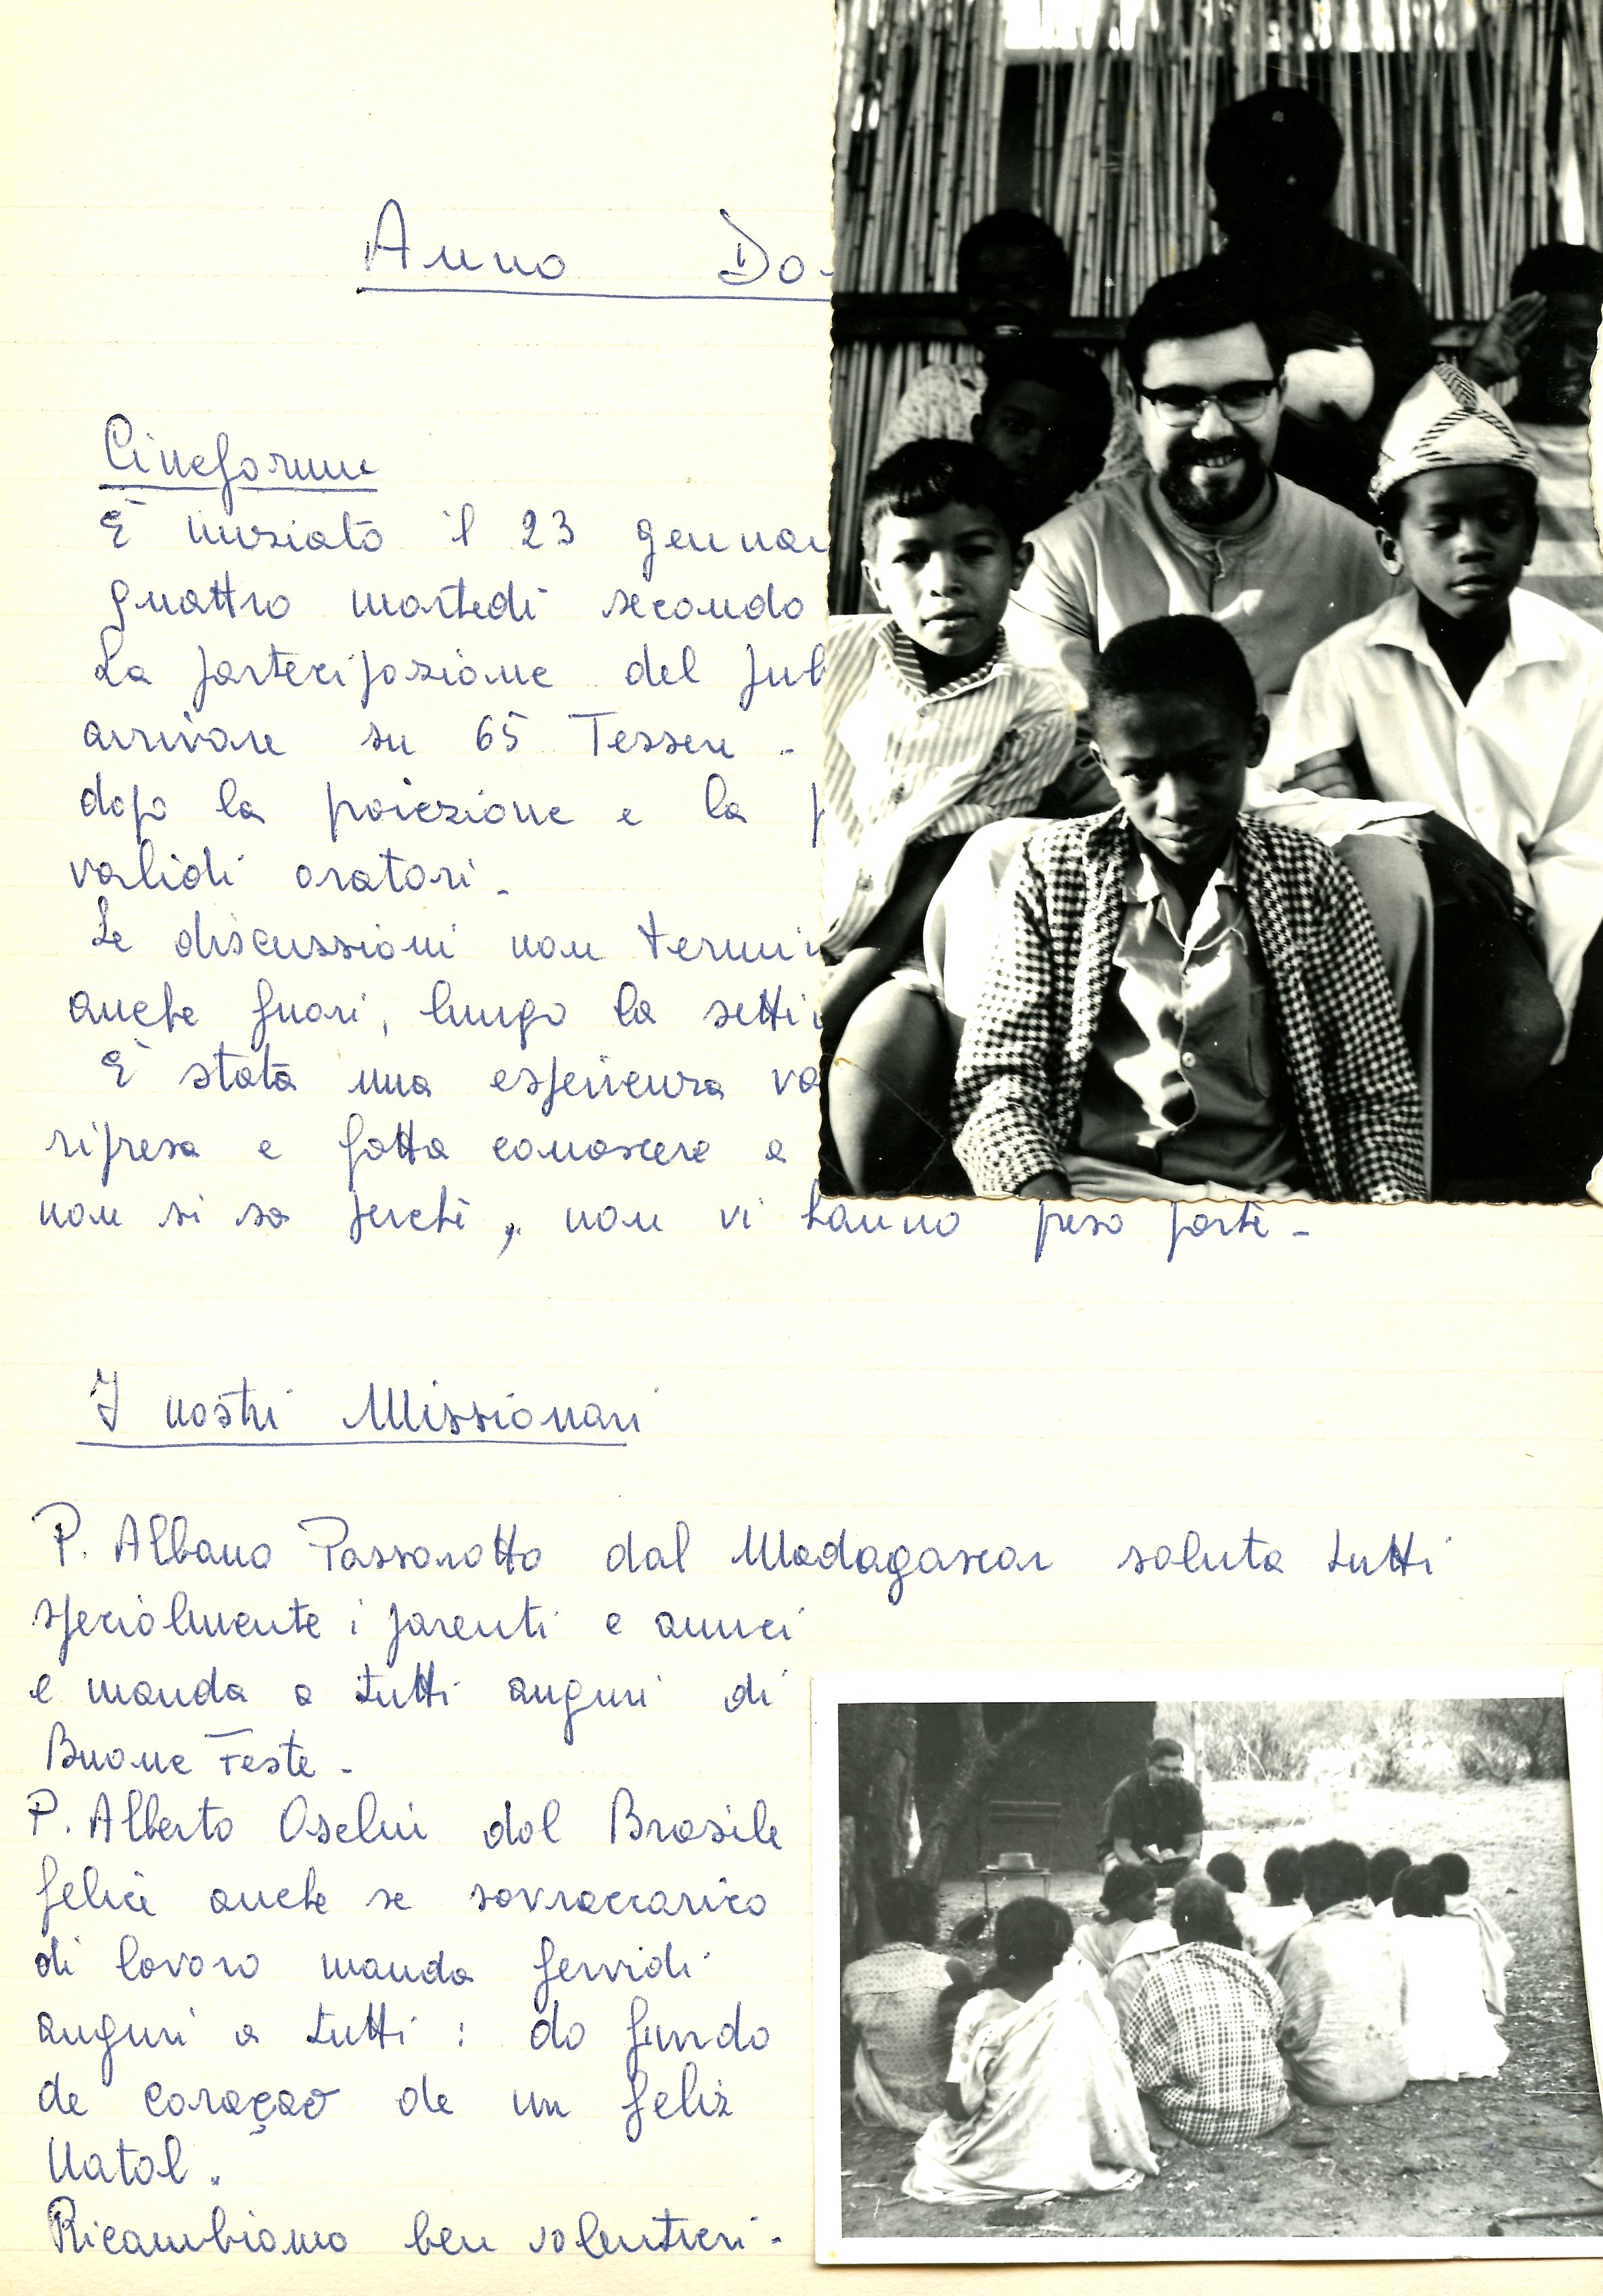 Anno Do
Cineforum
È iniziato il 23 gennai
quattro martedì secondo
La partecipazione del pub
arrivare su 65 Tessere -
dopo la proiezione e la p
validi oratori -
Le discussioni non termin
anche fuori, lungo la setti
È stata una esperienza va
ripresa e fatta conoscere a
non si sa perchè, non vi hanno preso parte -
I nostri Missionari
P. Albano Passarotto dal Madagascar saluta tutti
specialmente i parenti e amici
e manda a tutti auguri di
Buone Feste -
P. Alberto dal Brasile
felice anche se sovraccarico
di lavoro manda fervidi
auguri a tutti : do fundo
de coraçao de un feliz
Natal.
Ricambiamo ben volentieri -